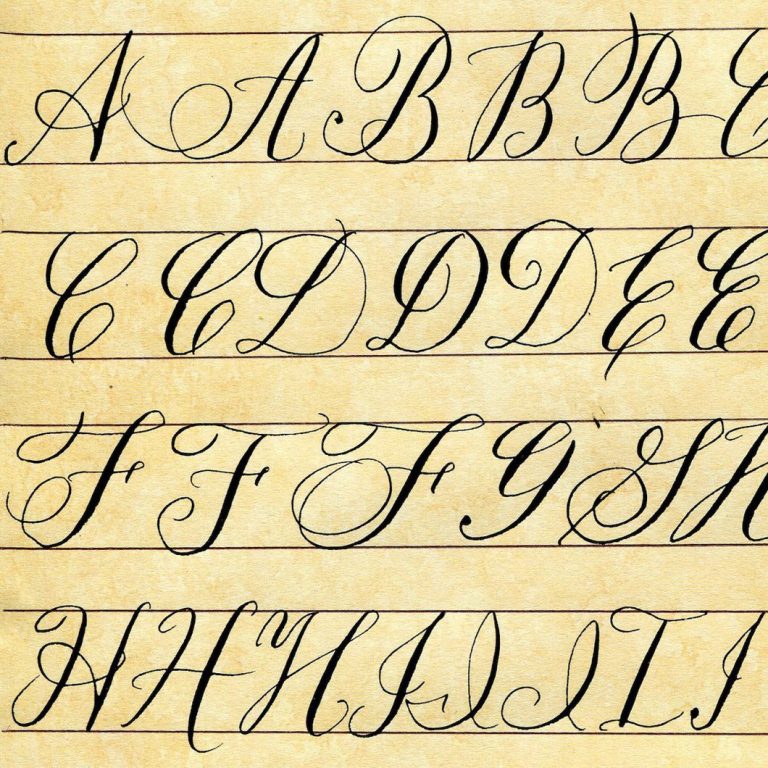 A A B B B C
C C D D D E E
F F F G G H
H H H I I I I